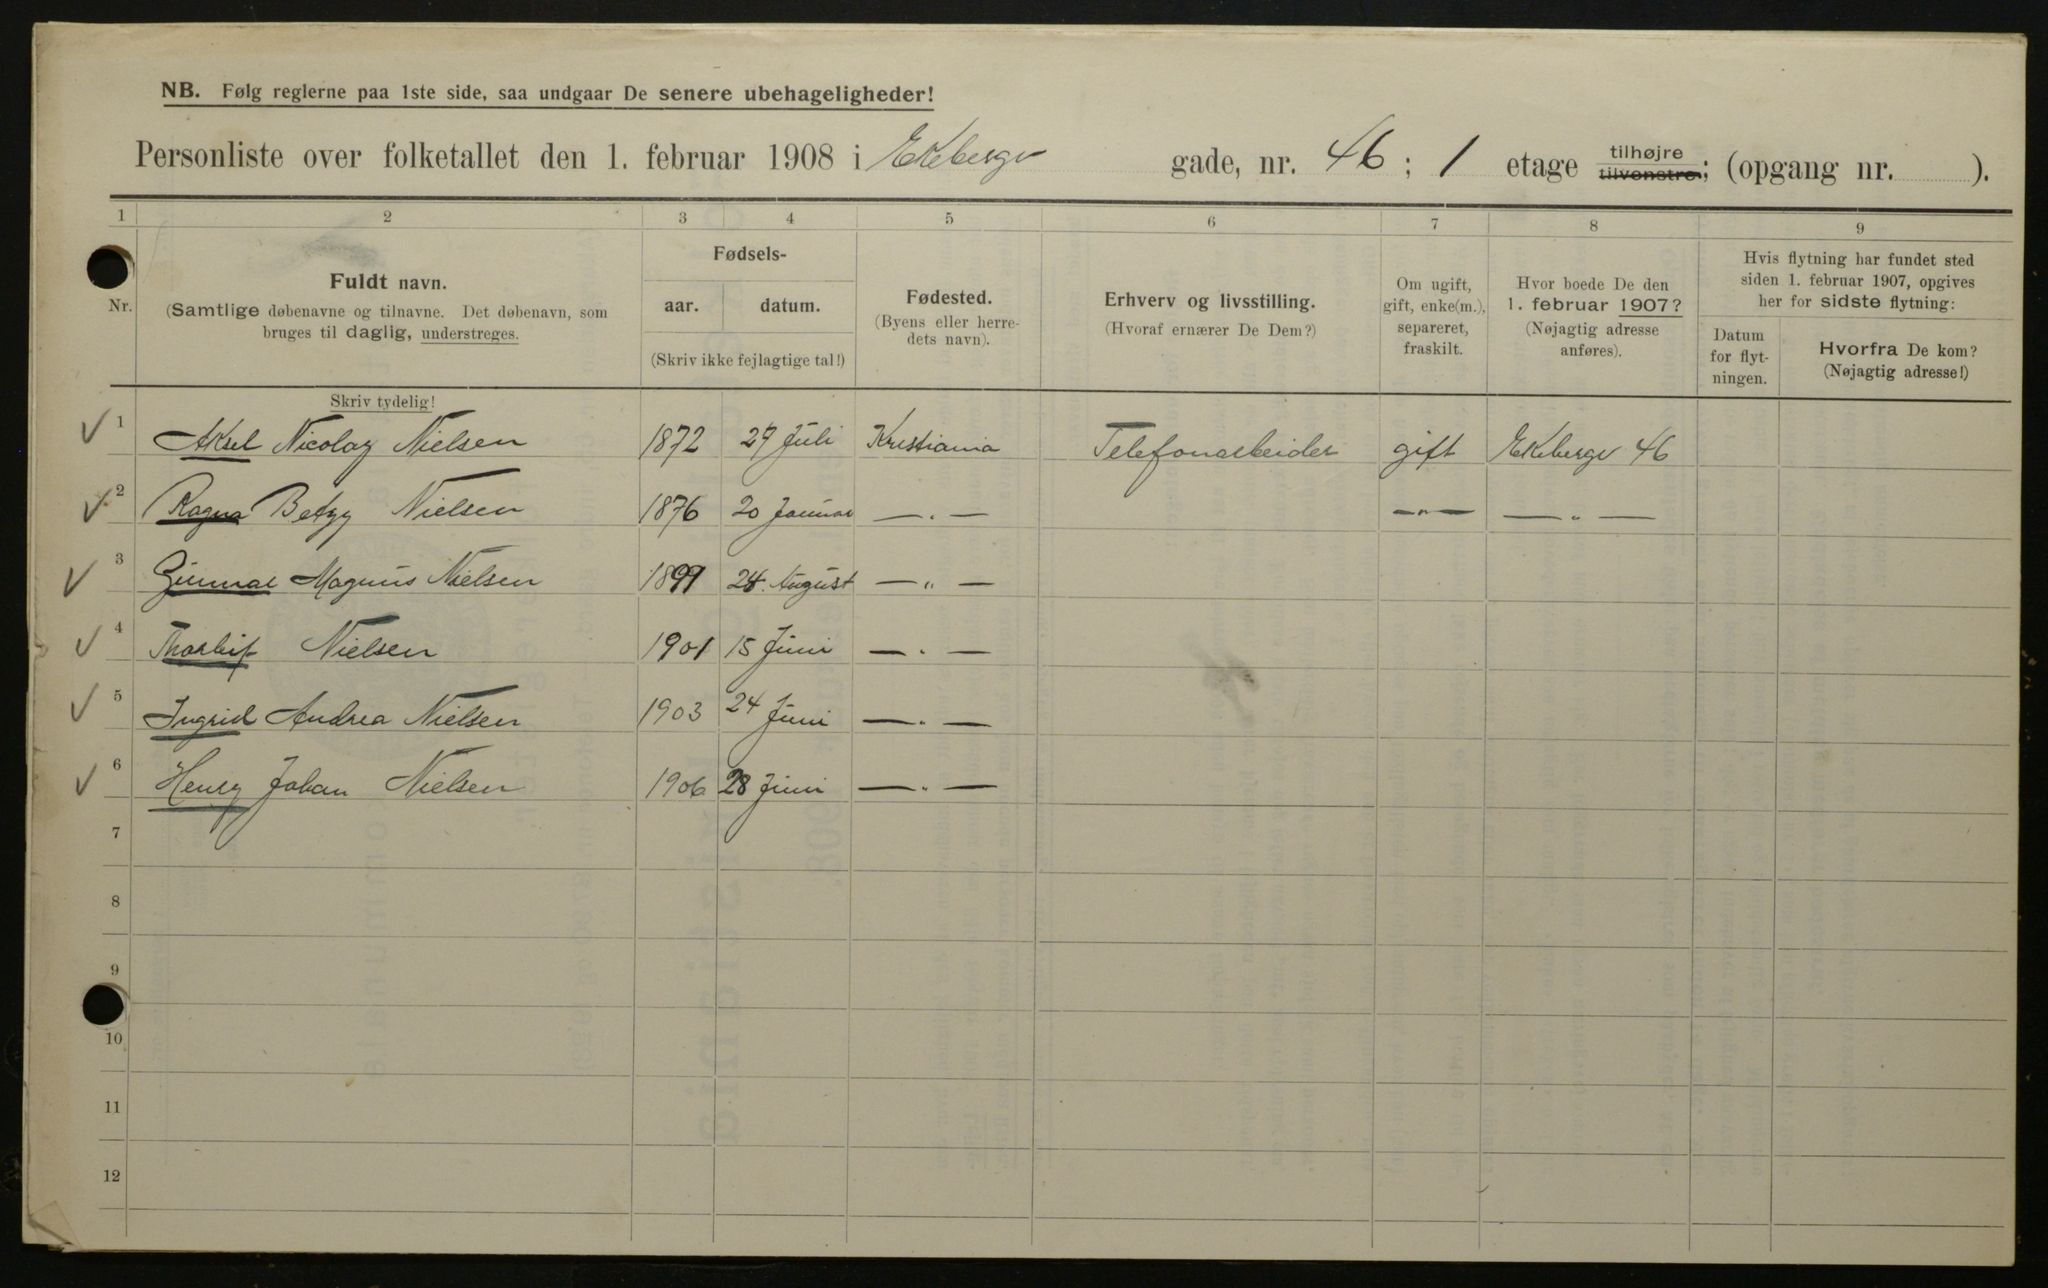 NB. Følg reglerne paa 1ste side, saa undgaar De senere ubehageligheder!
Personliste over folketallet den 1. februar 1908 i Ekebergv gade, nr. 46 ; 1 etage tilhøjre tilvenstre; (opgang nr. ).
1 2 3 4 5 6 7 8 9
Nr.
Fuldt navn.
(Samtlige døbenavne og tilnavne. Det døbenavn, som
bruges til daglig, understreges.
Skriv tydelig!
Fødsels-
aar. datum.
(Skriv ikke fejlagtige tal!)
Fødested.
(Byens eller herre-
dets navn).
Erhverv og livsstilling.
(Hvoraf ernærer De Dem?)
Om ugift,
gift, enke(m.),
separeret,
fraskilt.
Hvor boede De den
1. februar 1907?
(Nøjagtig adresse
anføres).
Hvis flytning har fundet sted
siden 1. februar 1907, opgives
her for sidste flytning:
Datum
for flyt-
ningen.
Hvorfra De kom?
(Nøjagtig adresse!)
1 Aksel Nicolay Nielsen 1872 27 Juli Kristiania Telefonarbeider gift Ekebergv 46
2 Ragna Betzy Nielsen 1876 20 Januar — " — — " — — " —
3 Gunnar Magnus Nielsen 1899 24. August — " —
4 Thorleif Nielsen 1901 15 Juni — " —
5 Ingrid Andrea Nielsen 1903 24 Juni — " —
6 Henry Johan Nielsen 1906 28 Juni — " —
7
8
9
10
11
12